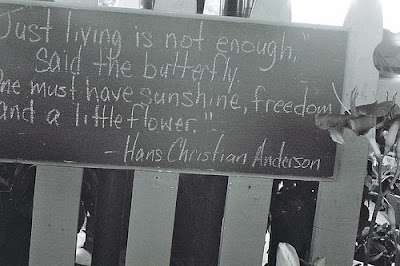 Just living is not enough,"
said the butterfly.
One must have sunshine, freedom
and a little flower."
-Hans Christian Anderson